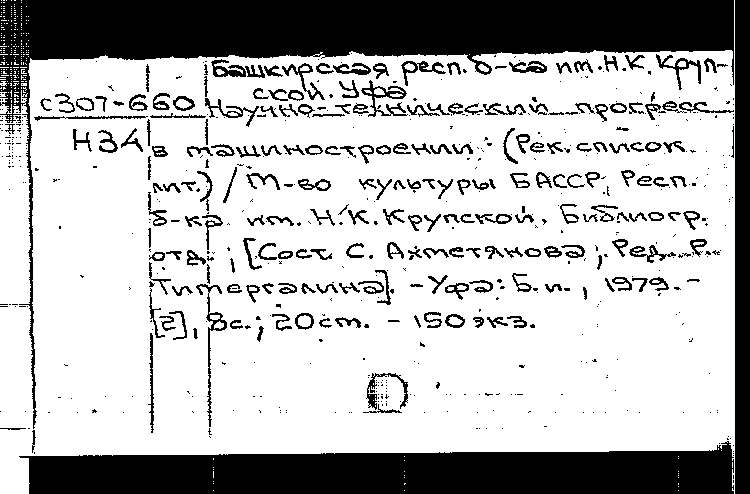 Башкирская респ. б-ка им. Н.К. Круп-
ской. Уфа
с307-660 Научно-технический прогресс
Н34 в машиностроении : (Рек. список
лит.) / М-во культуры БАССР, Респ.
б-ка им. Н.К. Крупской, Библиогр.
отд. ; [Сост. С. Ахметянова ; Ред. Р.
Тимергалина]. - Уфа : Б.и., 1979. -
[2], 8с. ; 20см. - 150 экз.